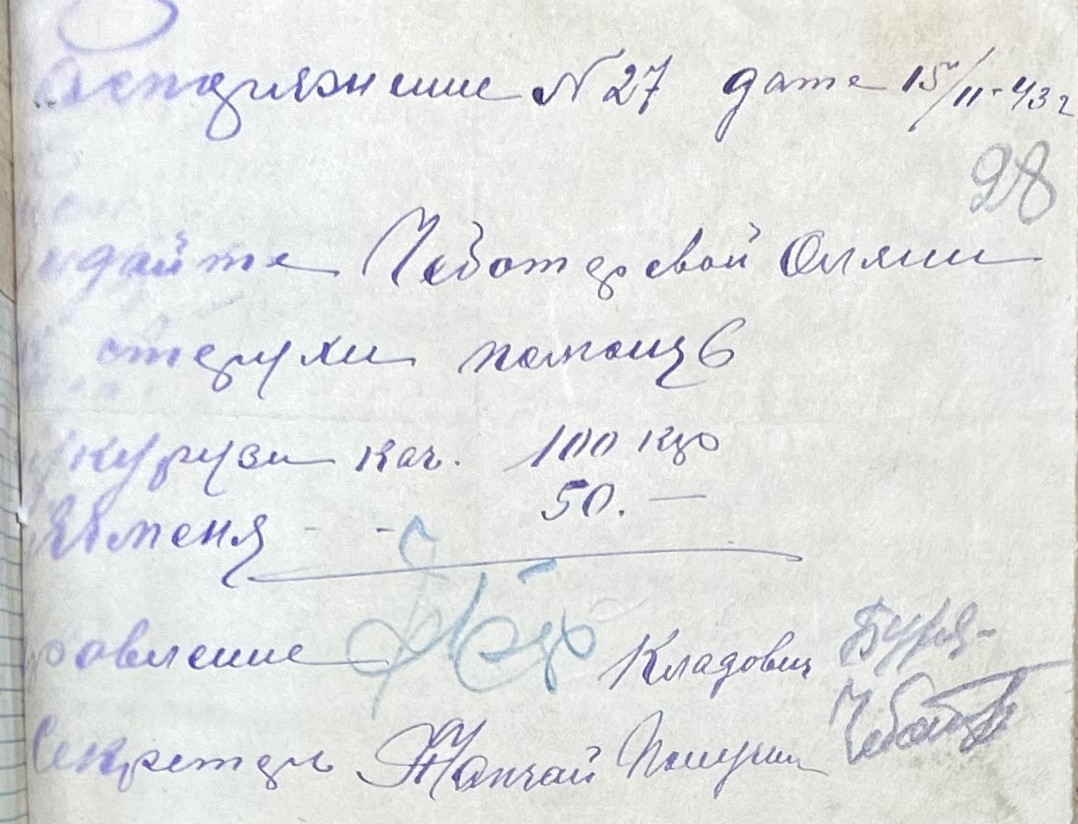 Распоряжение N 27 дата 15/11-43 г
98
выдайте Чеботаревой Оляни
старухи помощь
кукурузи кач. 100 кго
Ячменя - - 50. —
Правление Кладовщ Буря-
Секретарь Получил